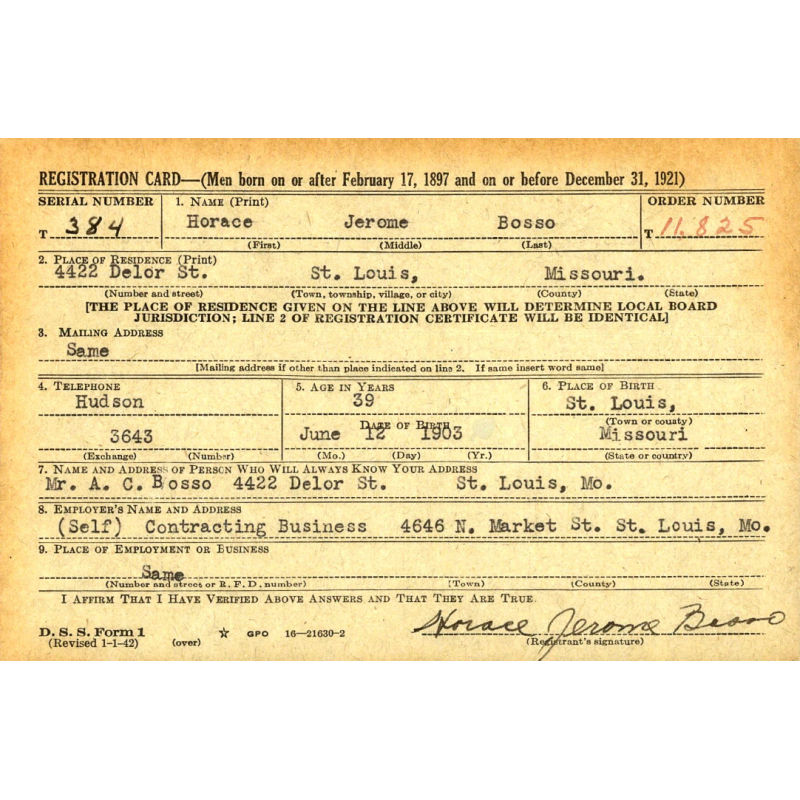 REGISTRATION CARD—(Men born on or after February 17, 1897 and on or before December 31, 1921)
SERIAL NUMBER 1. NAME (Print) ORDER NUMBER
T 384 Horace Jerome Bosso T 11,825
(First) (Middle) (Last)
2. PLACE OF RESIDENCE (Print)
4422 Delor St. St. Louis, Missouri.
(Number and street) (Town, township, village, or city) (County) (State)
[THE PLACE OF RESIDENCE GIVEN ON THE LINE ABOVE WILL DETERMINE LOCAL BOARD
JURISDICTION; LINE 2 OF REGISTRATION CERTIFICATE WILL BE IDENTICAL]
3. MAILING ADDRESS
Same
[Mailing address if other than place indicated on line 2. If same insert word same]
4. TELEPHONE 5. AGE IN YEARS 6. PLACE OF BIRTH
Hudson 39 St. Louis,
(Town or county)
DATE OF BIRTH
3643 June 12 1903 Missouri
(Exchange) (Number) (Mo.) (Day) (Yr.) (State or country)
7. NAME AND ADDRESS OF PERSON WHO WILL ALWAYS KNOW YOUR ADDRESS
Mr. A. C. Bosso 4422 Delor St. St. Louis, Mo.
8. EMPLOYER'S NAME AND ADDRESS
(Self) Contracting Business 4646 N. Market St. St. Louis, Mo.
9. PLACE OF EMPLOYMENT OR BUSINESS
Same
(Number and street or R. F. D. number) (Town) (County) (State)
I AFFIRM THAT I HAVE VERIFIED ABOVE ANSWERS AND THAT THEY ARE TRUE.
Horace Jerome Bosso
D. S. S. Form 1 ☆ GPO 16—21630-2
(Revised 1-1-42) (over) (Registrant's signature)